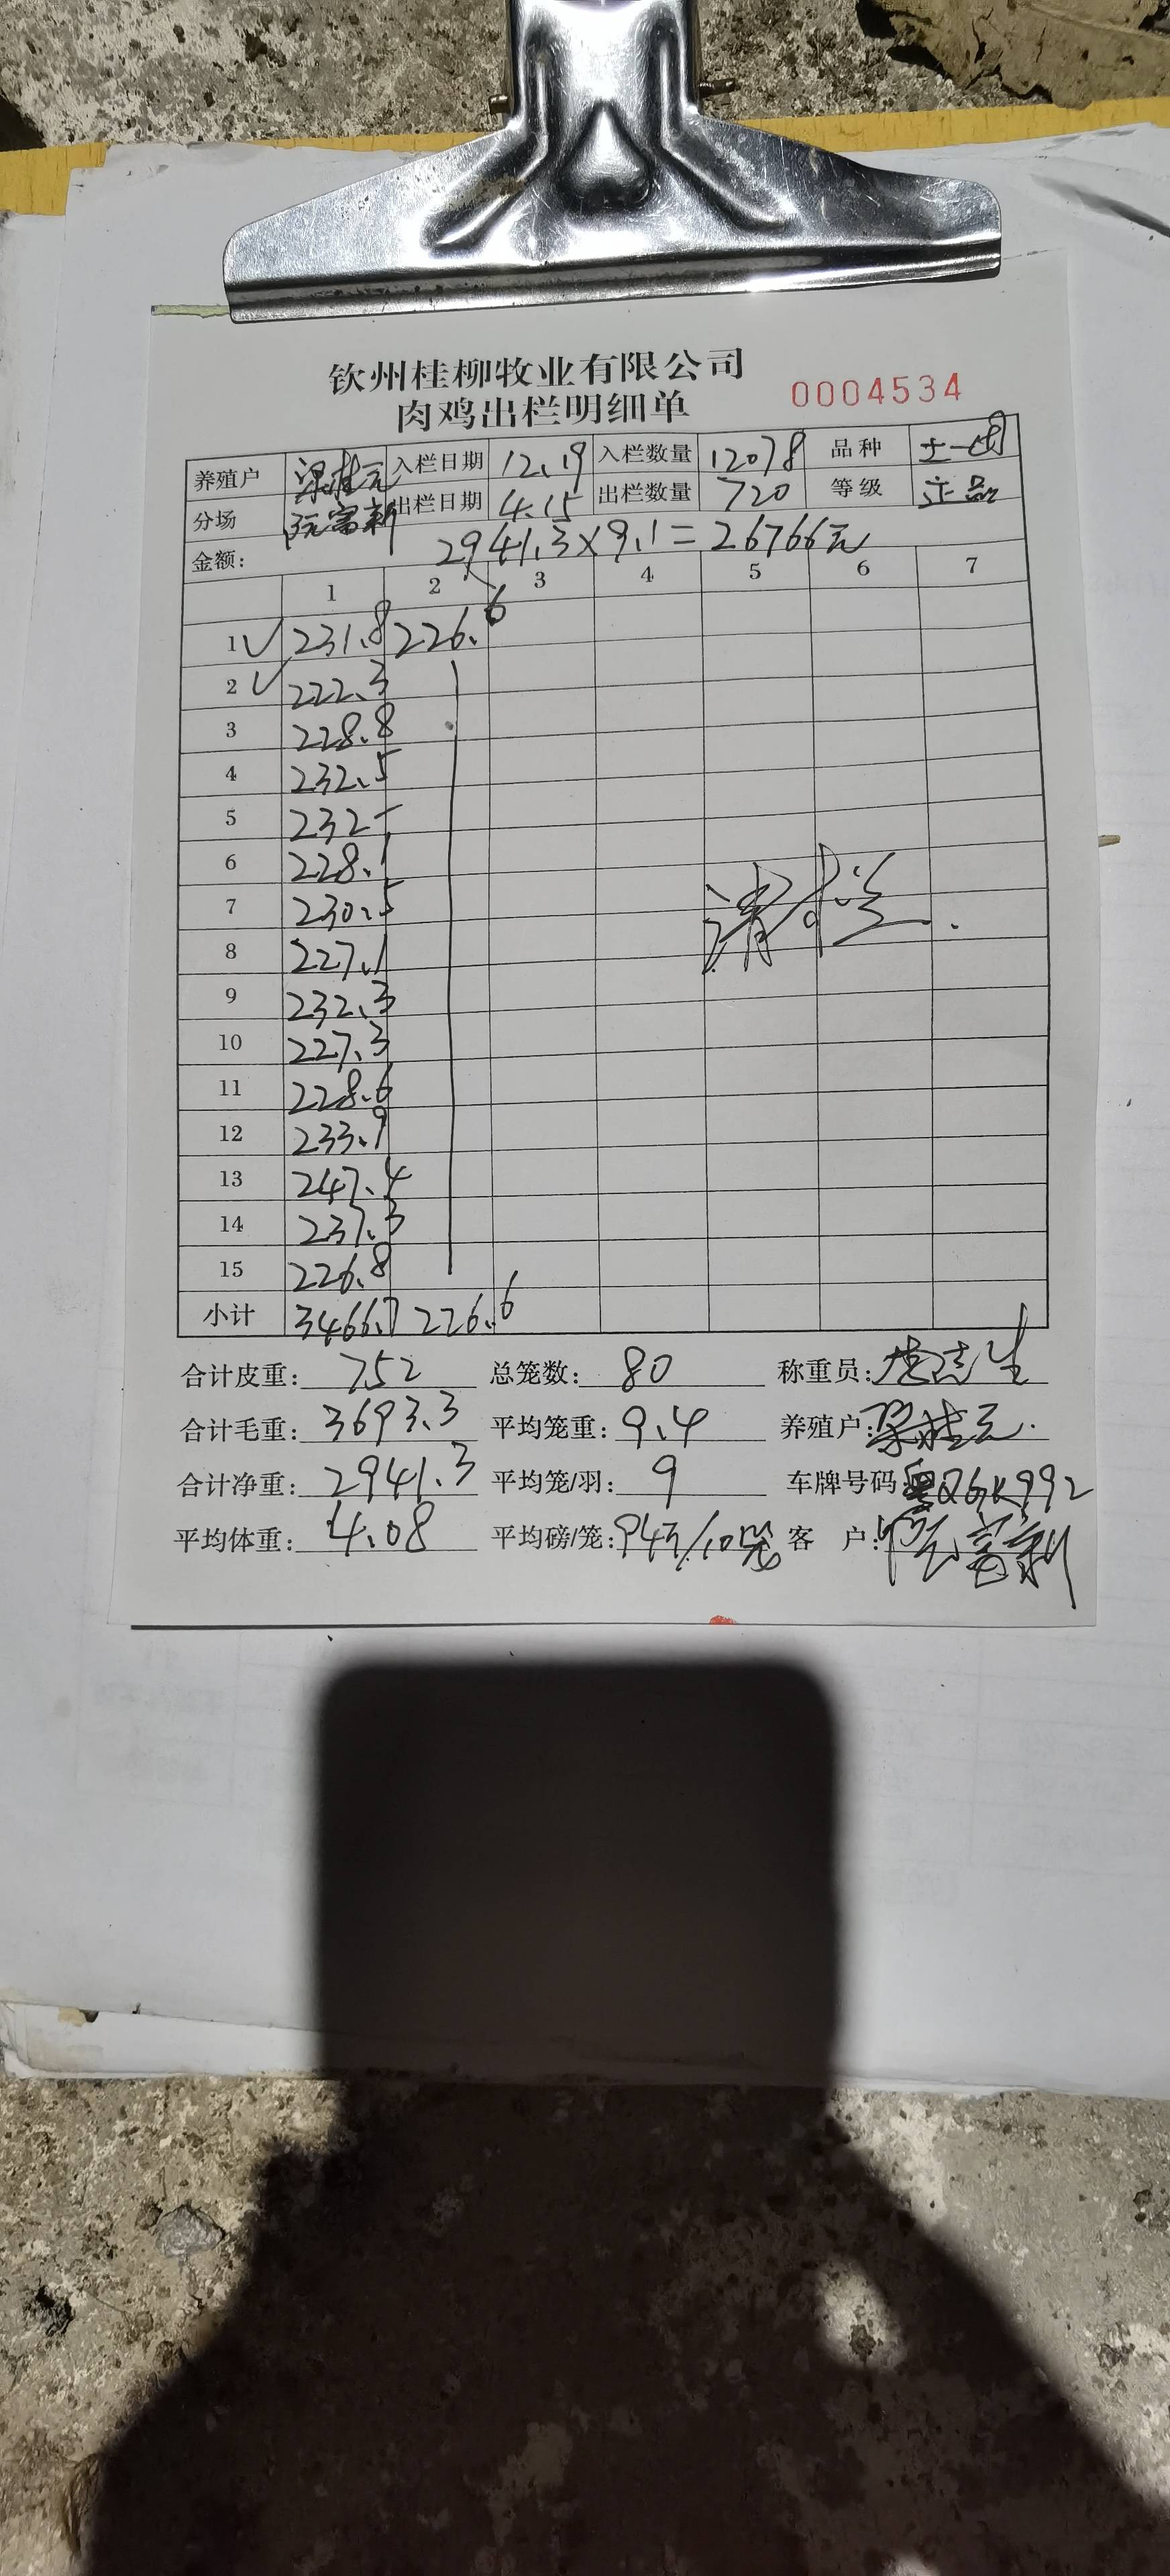 钦州桂柳牧业有限公司
肉鸡出栏明细单 0004534
养殖户 梁桂元 入栏日期 12.19 入栏数量 12078 品种 土一
分场 阮富新 出栏日期 4.15 出栏数量 720 等级 正品
金额: 2941.3×9.1=26766元
1 2 3 4 5 6 7
1✓ 231.8 226.6
2✓ 222.3
3 228.8
4 232.5
5 232-
6 228.1
7 230.5
8 227.1
9 232.3
10 227.3
11 228.6
12 233.9
13 247.4
14 237.3
15 226.8
清栏.
小计 3466.7 226.6
合计皮重: 752 总笼数: 80 称重员:
合计毛重: 3693.3 平均笼重: 9.4 养殖户: 梁桂元.
合计净重: 2941.3 平均笼/羽: 9 车牌号码: 粤QGK992
平均体重: 4.08 平均磅/笼: 94斤/10笼 客 户: